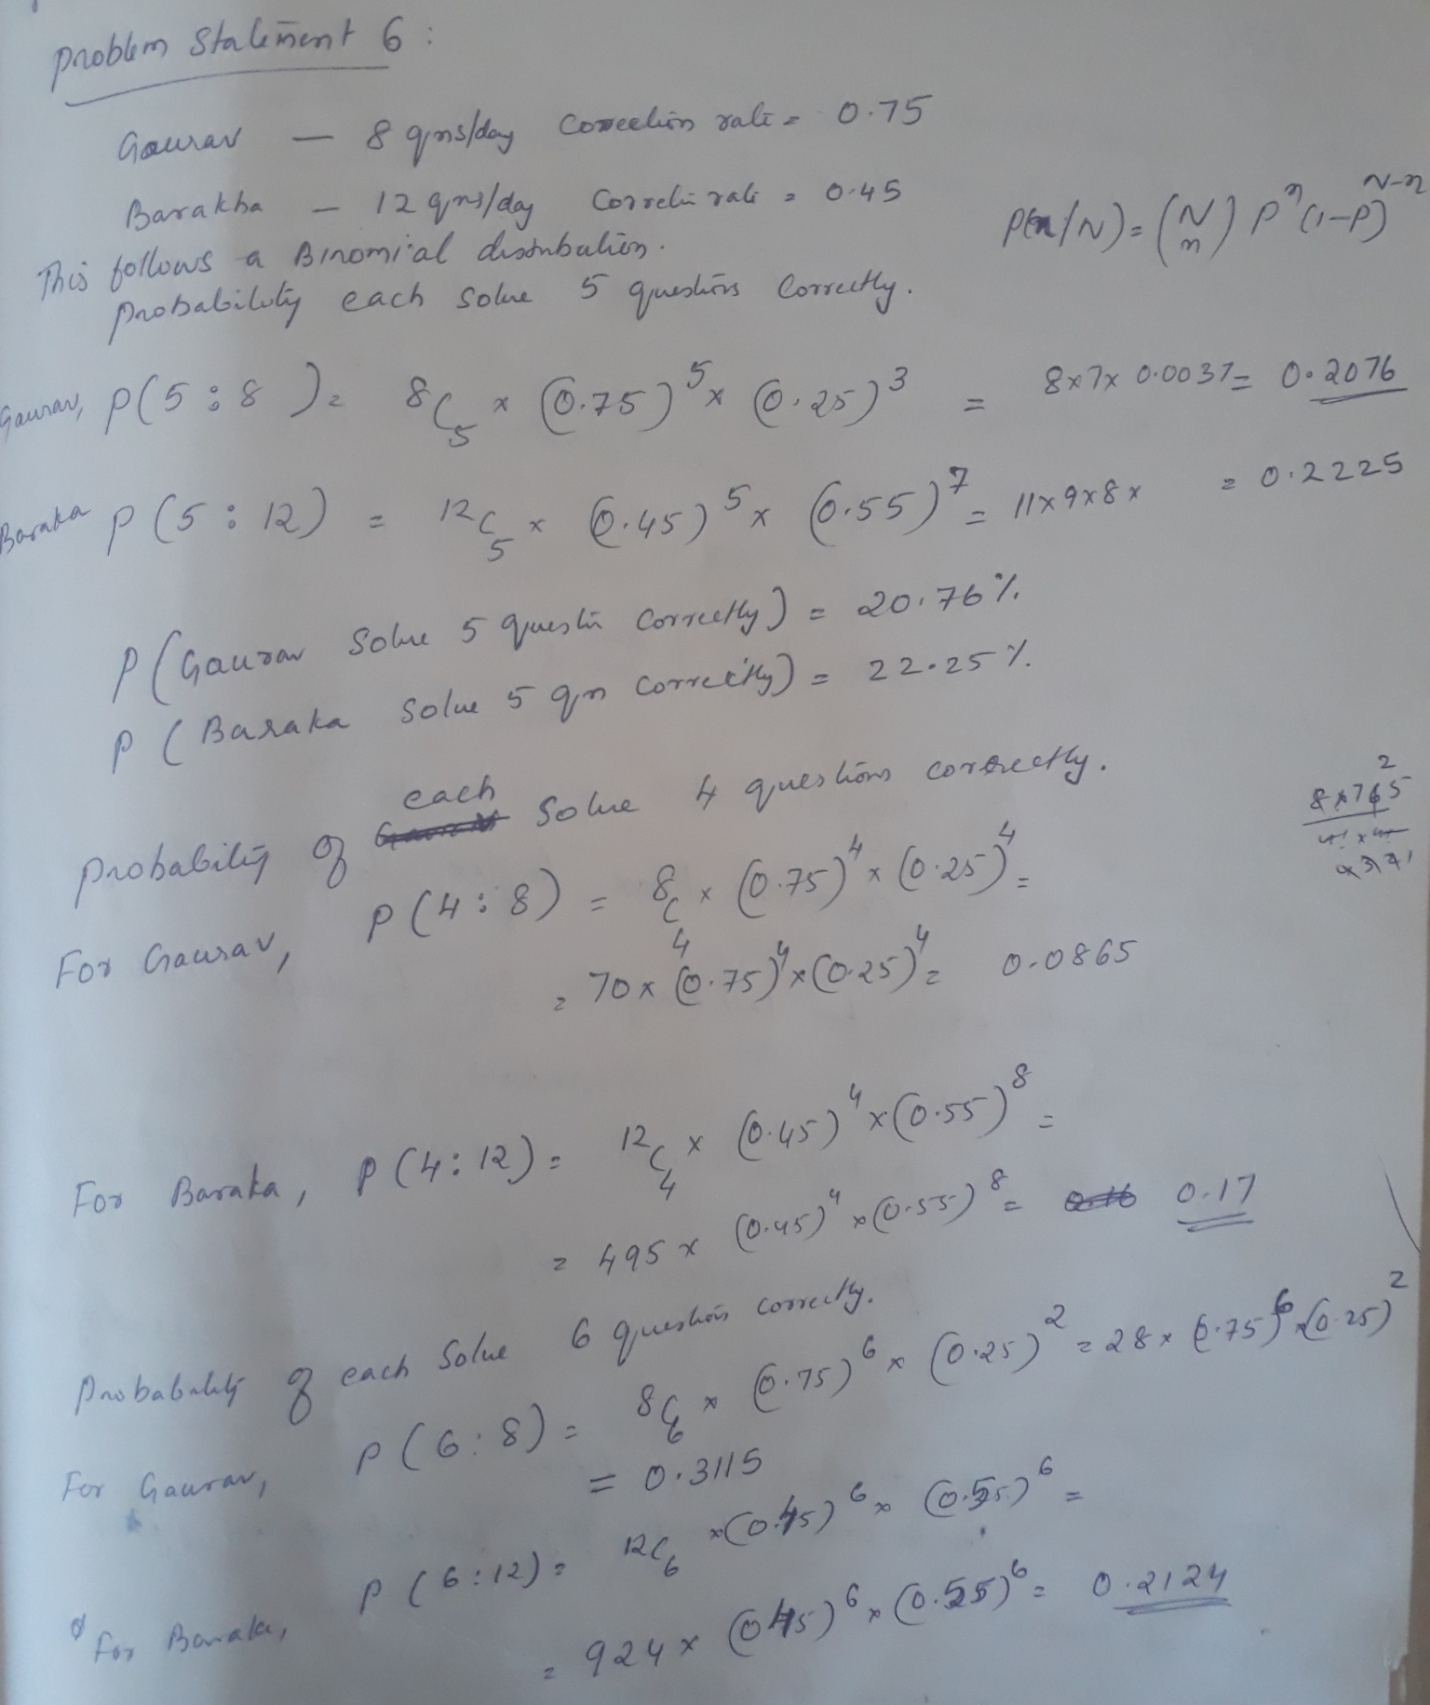 Problem Statement 6 :
Gaurav — 8 qns/day Correction rate = 0.75
Barakha — 12 qns/day Correctin rate = 0.45
P(n/N) = (N n) P^n (1-P)^N-n
This follows a Binomial distribution.
Probability each Solve 5 questions Correctly.
Gaurav, P(5:8) = 8C5 × (0.75)^5 × (0.25)^3 = 8×7× 0.0037 = 0.2076
Baraka P(5:12) = 12C5 × (0.45)^5 × (0.55)^7 = 11×9×8× = 0.2225
P(Gaurav Solve 5 questin Correctly) = 20.76%
P(Baraka Solve 5 qn Correctly) = 22.25%
Probability of each Solve 4 questions correctly.
8×765 2
For Gaurav, P(4:8) = 8C4 × (0.75)^4 × (0.25)^4 =
= 70 × (0.75)^4 × (0.25)^4 = 0.0865
For Baraka, P(4:12) = 12C4 × (0.45)^4 × (0.55)^8 =
= 495 × (0.45)^4 × (0.55)^8 = 0.17
Probability of each Solve 6 question correctly.
For Gaurav, P(6:8) = 8C6 × (0.75)^6 × (0.25)^2 = 28 × (0.75)^6 × (0.25)^2
= 0.3115
For Baraka, P(6:12) = 12C6 × (0.45)^6 × (0.55)^6 =
= 924 × (0.45)^6 × (0.55)^6 = 0.2124